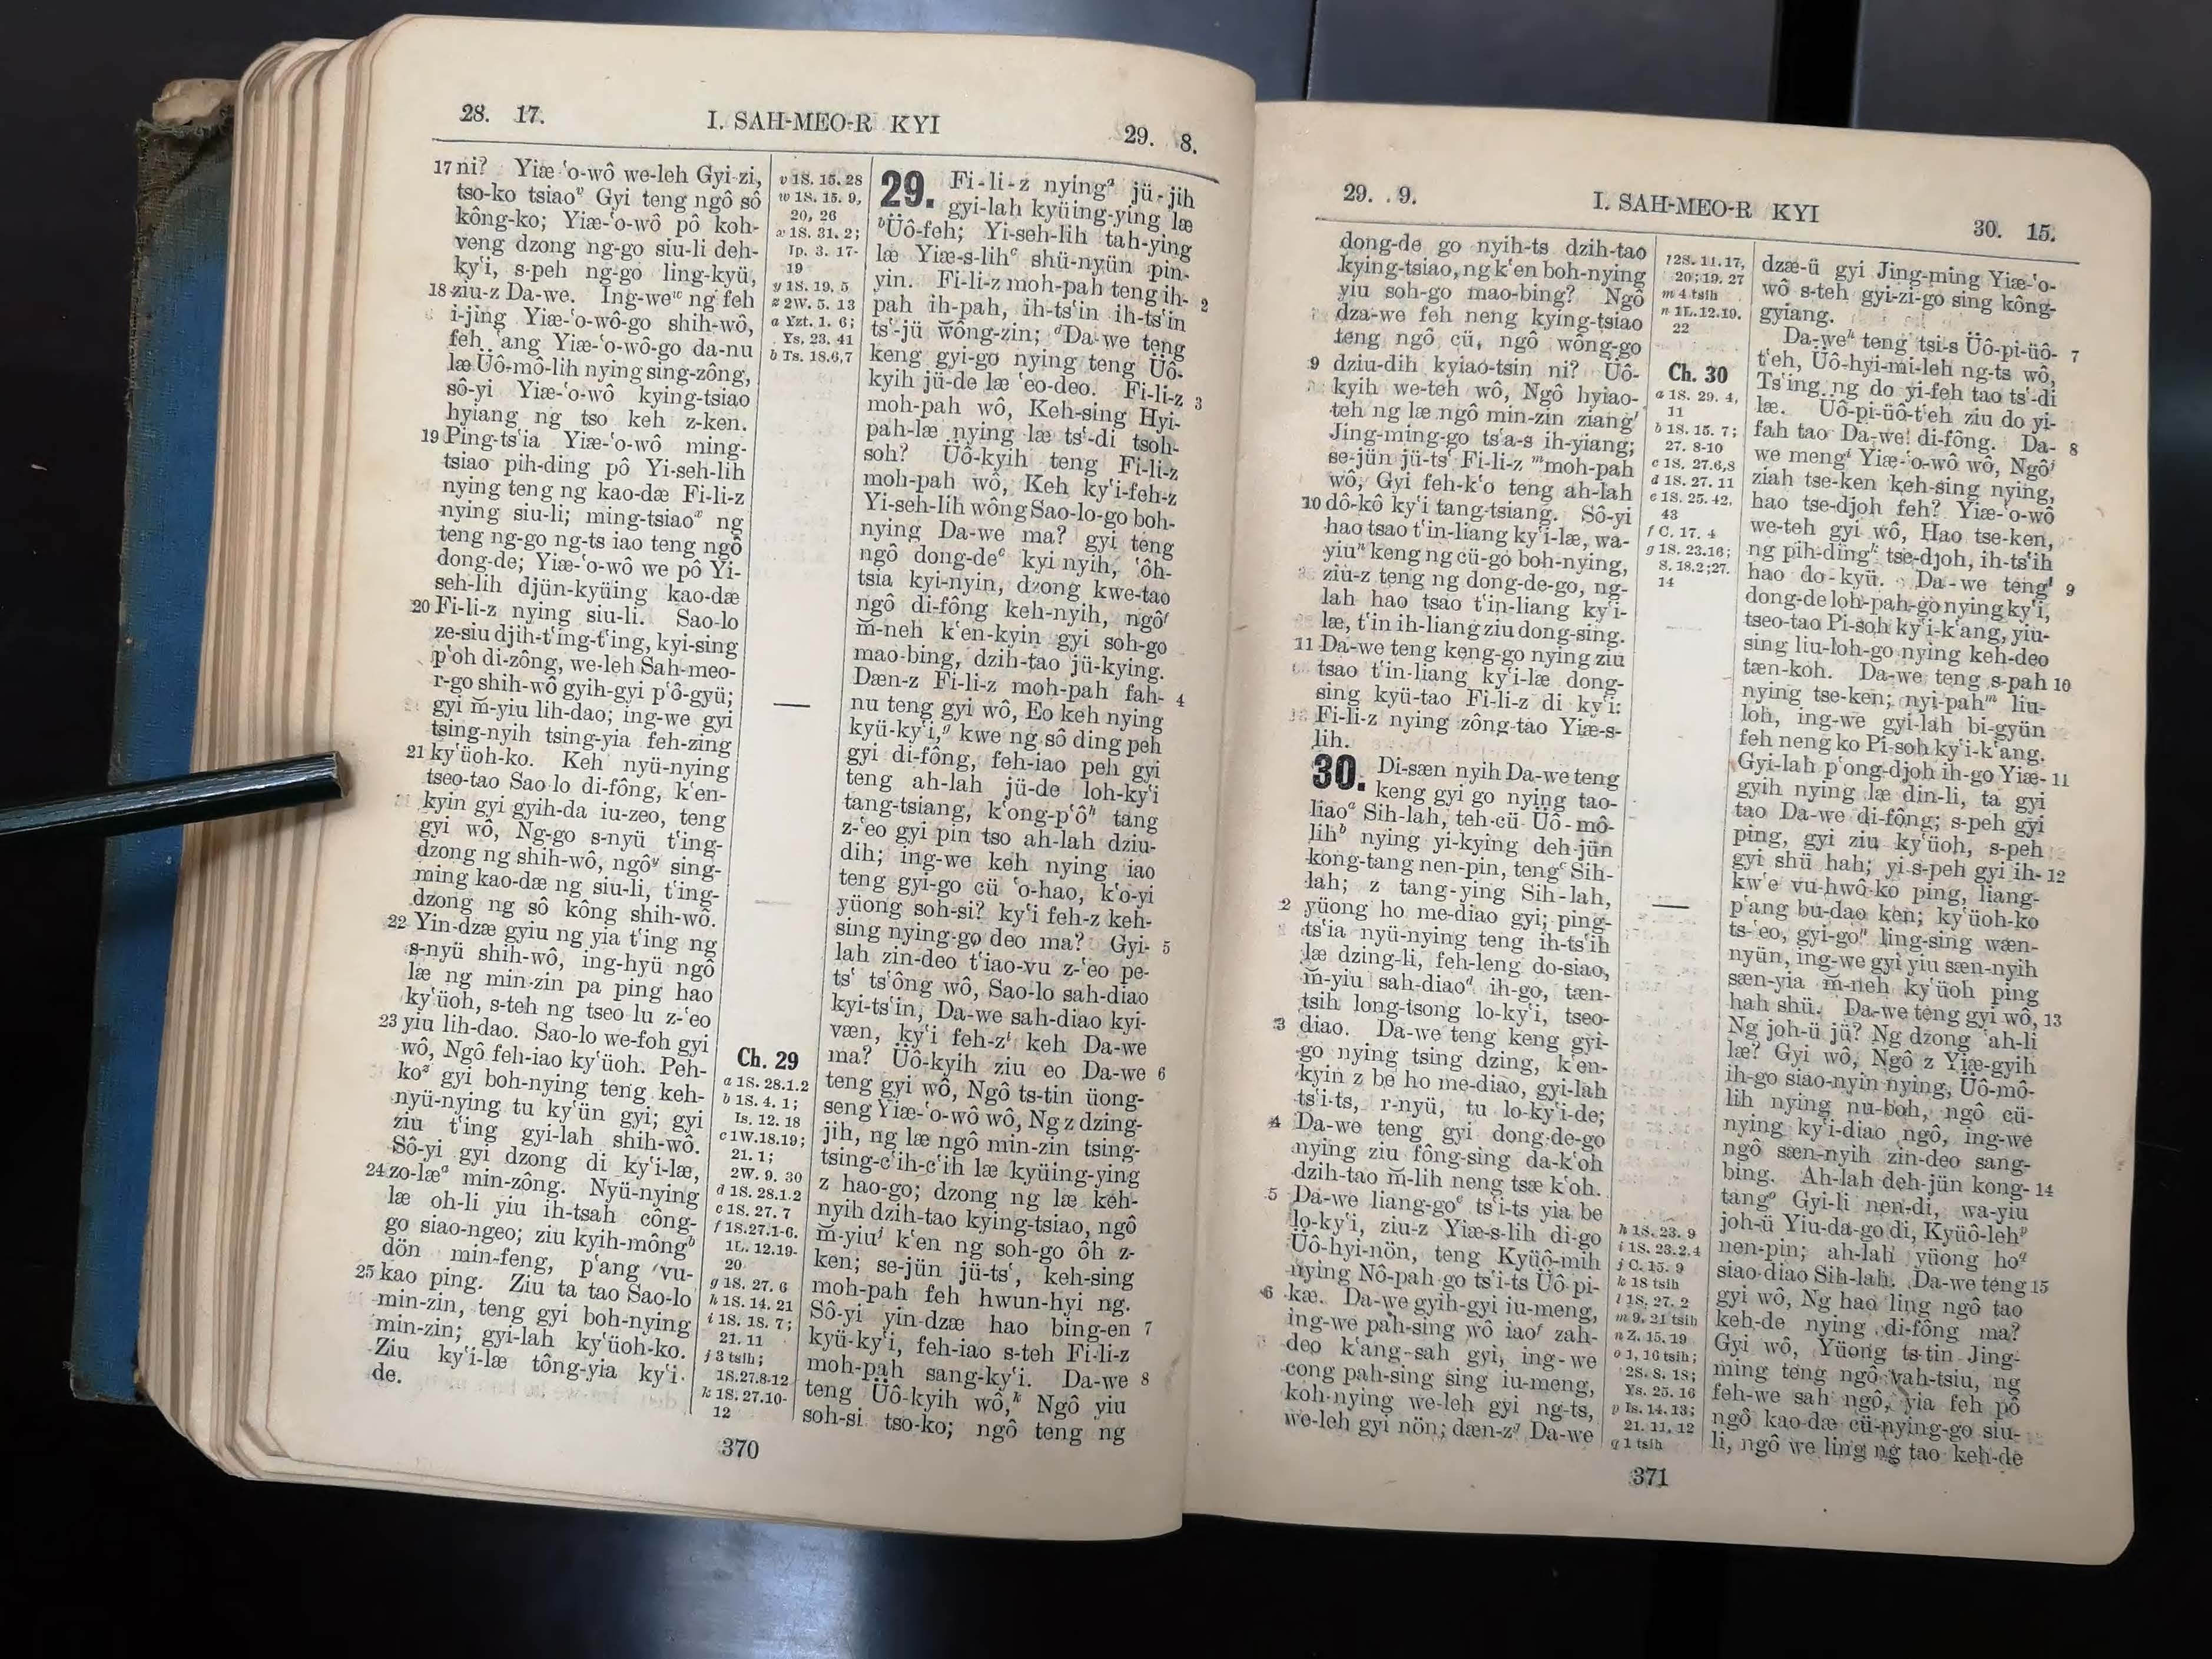 28. 17. I. SAH-MEO-R KYI 29. 8.
17 ni? Yiæ-‘o-wô we-leh Gyi-zi,
tso-ko tsiaoᵛ Gyi teng ngô sô
kông-ko; Yiæ-‘o-wô pô koh-
veng dzong ng-go siu-li deh-
ky‘i, s-peh ng-go ling-kyü,
18 ziu-z Da-we. Ing-weʷ ng feh
i-jing Yiæ-‘o-wô-go shih-wô,
feh ‘ang Yiæ-‘o-wô-go da-nu
læ Üô-mô-lih nying sing-zông,
sô-yi Yiæ-‘o-wô kying-tsiao
hyiang ng tso keh z-ken.
19 Ping-ts‘ia Yiæ-‘o-wô ming-
tsiao pih-ding pô Yi-seh-lih
nying teng ng kao-dæ Fi-li-z
nying siu-li; ming-tsiaoˣ ng
teng ng-go ng-ts iao teng ngô
dong-de; Yiæ-‘o-wô we pô Yi-
seh-lih djün-kyüing kao-dæ
20 Fi-li-z nying siu-li. Sao-lo
ze-siu djih-t‘ing-t‘ing, kyi-sing
p‘oh di-zông, we-leh Sah-meo-
r-go shih-wô gyih-gyi p‘ô-gyü;
gyi m̆-yiu lih-dao; ing-we gyi
tsing-nyih tsing-yia feh-zing
21 ky‘üoh-ko. Keh nyü-nying
tseo-tao Sao-lo di-fông, k‘en-
kyin gyi gyih-da iu-zeo, teng
gyi wô, Ng-go s-nyü t‘ing-
dzong ng shih-wô, ngôʸ sing-
ming kao-dæ ng siu-li, t‘ing-
dzong ng sô kông shih-wô.
22 Yin-dzæ gyiu ng yia t‘ing ng
s-nyü shih-wô, ing-hyü ngô
læ ng min-zin pa ping hao
ky‘üoh, s-teh ng tseo lu z-‘eo
23 yiu lih-dao. Sao-lo we-foh gyi
wô, Ngô feh-iao ky‘üoh. Peh-
koᶻ gyi boh-nying teng keh-
nyü-nying tu ky‘ün gyi; gyi
ziu t‘ing gyi-lah shih-wô.
Sô-yi gyi dzong di ky‘i-læ,
24 zo-læᵃ min-zông. Nyü-nying
læ oh-li yiu ih-tsah công-
go siao-ngeo; ziu kyih-môngᵇ
dön min-feng, p‘ang vu-
25 kao ping. Ziu ta tao Sao-lo
min-zin, teng gyi boh-nying
min-zin; gyi-lah ky‘üoh-ko.
Ziu ky‘i-læ tông-yia ky‘i-
de.
v 1S. 15. 28
w 1S. 15. 9,
20, 26
x 1S. 31. 2;
Ip. 3. 17-
19
y 1S. 19. 5
z 2W. 5. 13
a Yzt. 1. 6;
Ys. 23. 41
b Ts. 18.6,7
Ch. 29
a 1S. 28.1.2
b 1S. 4. 1;
Is. 12. 18
c 1W.18.19;
21. 1;
2W. 9. 30
d 1S. 28.1.2
e 1S. 27. 7
f 1S.27.1-6.
1L. 12.19-
20
g 1S. 27. 6
h 1S. 14. 21
i 1S. 18. 7;
21. 11
j 3 tsih;
1S.27.8-12
k 1S. 27.10-
12
29. Fi-li-z nyingᵃ jü-jih
gyi-lah kyüing-ying læ
ᵇÜô-feh; Yi-seh-lih tah-ying
læ Yiæ-s-lihᶜ shü-nyün pin-
yin. Fi-li-z moh-pah teng ih- 2
pah ih-pah, ih-ts‘in ih-ts‘in
ts‘-jü wông-zin; ᵈDa-we teng
keng gyi-go nying teng Üô-
kyih jü-de læ ‘eo-deo. Fi-li-z 3
moh-pah wô, Keh-sing Hyi-
pah-læ nying læ ts‘-di tsoh-
soh? Üô-kyih teng Fi-li-z
moh-pah wô, Keh ky‘i-feh-z
Yi-seh-lih wông Sao-lo-go boh-
nying Da-we ma? gyi teng
ngô dong-deᵉ kyi nyih, ‘ôh-
tsia kyi-nyin, dzong kwe-tao
ngô di-fông keh-nyih, ngôᶠ
m̆-neh k‘en-kyin gyi soh-go
mao-bing, dzih-tao jü-kying.
Dæn-z Fi-li-z moh-pah fah- 4
nu teng gyi wô, Eo keh nying
kyü-ky‘i,ᵍ kwe ng sô ding peh
gyi di-fông, feh-iao peh gyi
teng ah-lah jü-de loh-ky‘i
tang-tsiang, k‘ong-p‘ôʰ tang
z-‘eo gyi pin tso ah-lah dziu-
dih; ing-we keh nying iao
teng gyi-go cü ‘o-hao, k‘o-yi
yüong soh-si? ky‘i feh-z keh-
sing nying-go deo ma? Gyi- 5
lah zin-deo t‘iao-vu z-‘eo pe-
ts‘ ts‘ông wô, Sao-lo sah-diao
kyi-ts‘in, Da-we sah-diao kyi-
væn, ky‘i feh-zⁱ keh Da-we
ma? Üô-kyih ziu eo Da-we 6
teng gyi wô, Ngô ts-tin üong-
seng Yiæ-‘o-wô wô, Ng z dzing-
jih, ng læ ngô min-zin tsing-
tsing-c‘ih-c‘ih læ kyüing-ying
z hao-go; dzong ng læ keh-
nyih dzih-tao kying-tsiao, ngô
m̆-yiuʲ k‘en ng soh-go ôh z-
ken; se-jün jü-ts‘, keh-sing
moh-pah feh hwun-hyi ng.
Sô-yi yin-dzæ hao bing-en 7
kyü-ky‘i, feh-iao s-teh Fi-li-z
moh-pah sang-ky‘i. Da-we 8
teng Üô-kyih wô,ᵏ Ngô yiu
soh-si tso-ko; ngô teng ng
370
29. 9. I. SAH-MEO-R KYI 30. 15.
dong-de go nyih-ts dzih-tao
kying-tsiao, ng k‘en boh-nying
yiu soh-go mao-bing? Ngô
dza-we feh neng kying-tsiao
teng ngô cü, ngô wông-go
9 dziu-dih kyiao-tsin ni? Üô-
kyih we-teh wô, Ngô hyiao-
teh ng læ ngô min-zin ziangˡ
Jing-ming-go ts‘a-s ih-yiang;
se-jün jü-ts‘ Fi-li-z ᵐmoh-pah
wô, Gyi feh-k‘o teng ah-lah
10 dô-kô ky‘i tang-tsiang. Sô-yi
hao tsao t‘in-liang ky‘i-læ, wa-
yiuⁿ keng ng cü-go boh-nying,
ziu-z teng ng dong-de-go, ng-
lah hao tsao t‘in-liang ky‘i-
læ, t‘in ih-liang ziu dong-sing.
11 Da-we teng keng-go nying ziu
tsao t‘in-liang ky‘i-læ dong-
sing kyü-tao Fi-li-z di ky‘i:
Fi-li-z nying zông-tao Yiæ-s-
lih.
30. Di-sæn nyih Da-we teng
keng gyi go nying tao-
liaoᵃ Sih-lah, teh-cü Üô-mô-
lihᵇ nying yi-kying deh-jün
kong-tang nen-pin, tengᶜ Sih-
lah; z tang-ying Sih-lah,
2 yüong ho me-diao gyi; ping-
ts‘ia nyü-nying teng ih-ts‘ih
læ dzing-li, feh-leng do-siao,
m̆-yiu sah-diaoᵈ ih-go, tæn-
tsih long-tsong lo-ky‘i, tseo-
3 diao. Da-we teng keng gyi-
go nying tsing dzing, k‘en-
kyin z be ho me-diao, gyi-lah
ts‘i-ts, r-nyü, tu lo-ky‘i-de;
4 Da-we teng gyi dong-de-go
nying ziu fông-sing da-k‘oh
dzih-tao m̆-lih neng tsæ k‘oh.
5 Da-we liang-goᵉ ts‘i-ts yia be
lo-ky‘i, ziu-z Yiæ-s-lih di-go
Üô-hyi-nön, teng Kyüô-mih
nying Nô-pah-go ts‘i-ts Üô-pi-
6 kæ. Da-we gyih-gyi iu-meng,
ing-we pah-sing wô iaoᶠ zah-
deo k‘ang-sah gyi, ing-we
cong pah-sing sing iu-meng,
koh-nying we-leh gyi ng-ts,
we-leh gyi nön; dæn-zᵍ Da-we
l 2S. 11.17,
20; 19. 27
m 4 tsih
n 1L.12.19.
22
Ch. 30
a 1S. 29. 4,
11
b 1S. 15. 7;
27. 8-10
c 1S. 27.6,8
d 1S. 27. 11
e 1S. 25. 42,
43
f C. 17. 4
g 1S. 23.16;
S. 18.2;27.
14
h 1S. 23. 9
i 1S. 23.2.4
j C. 15. 9
k 18 tsih
l 1S. 27. 2
m 9. 21 tsih
n Z. 15. 19
o 1, 16 tsih;
2S. 8. 18;
Ys. 25. 16
p Is. 14. 13;
21. 11, 12
q 1 tsih
dzæ-ü gyi Jing-ming Yiæ-‘o-
wô s-teh gyi-zi-go sing kông-
gyiang.
Da-weʰ teng tsi-s Üô-pi-üô- 7
t‘eh, Üô-hyi-mi-leh ng-ts wô,
Ts‘ing ng do yi-feh tao ts‘-di
læ. Üô-pi-üô-t‘eh ziu do yi-
fah tao Da-we di-fông. Da- 8
we mengⁱ Yiæ-‘o-wô wô, Ngôʲ
ziah tse-ken keh-sing nying,
hao tse-djoh feh? Yiæ-‘o-wô
we-teh gyi wô, Hao tse-ken,
ng pih-dingᵏ tse-djoh, ih-ts‘ih
hao do-kyü. Da-we tengˡ 9
dong-de loh-pah-go nying ky‘i,
tseo-tao Pi-soh ky‘i-k‘ang, yiu-
sing liu-loh-go nying keh-deo
tæn-koh. Da-we teng s-pah 10
nying tse-ken; nyi-pahᵐ liu-
loh, ing-we gyi-lah bi-gyün
feh neng ko Pi-soh ky‘i-k‘ang.
Gyi-lah p‘ong-djoh ih-go Yiæ- 11
gyih nying læ din-li, ta gyi
tao Da-we di-fông; s-peh gyi
ping, gyi ziu ky‘üoh, s-peh
gyi shü hah; yi s-peh gyi ih- 12
kw‘e vu-hwô-ko ping, liang-
p‘ang bu-dao ken; ky‘üoh-ko
ts-‘eo, gyi-goⁿ ling-sing wæn-
nyün, ing-we gyi yiu sæn-nyih
sæn-yia m̆-neh ky‘üoh ping
hah shü. Da-we teng gyi wô, 13
Ng joh-ü jü? Ng dzong ‘ah-li
læ? Gyi wô, Ngô z Yiæ-gyih
ih-go siao-nyin nying, Üô-mô-
lih nying nu-boh, ngô cü-
nying ky‘i-diao ngô, ing-we
ngô sæn-nyih zin-deo sang-
bing. Ah-lah deh-jün kong- 14
tangᵒ Gyi-li nen-di, wa-yiu
joh-ü Yiu-da-go di, Kyüô-lehᵖ
nen-pin; ah-lah yüong ho�q
siao-diao Sih-lah. Da-we teng 15
gyi wô, Ng hao ling ngô tao
keh-de nying di-fông ma?
Gyi wô, Yüong ts-tin Jing-
ming teng ngô vah-tsiu, ng
feh-we sah ngô, yia feh pô
ngô kao-dæ cü-nying-go siu-
li, ngô we ling ng tao keh-de
371